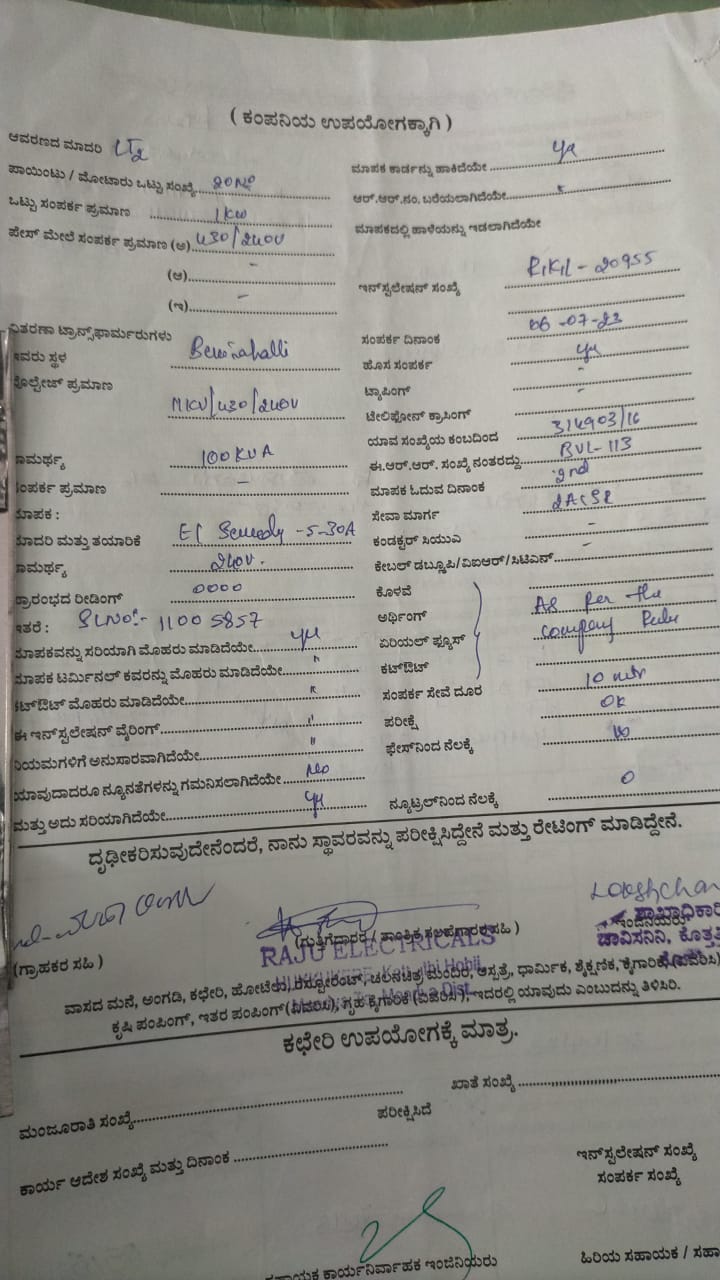 ( ಕಂಪನಿಯ ಉಪಯೋಗಕ್ಕಾಗಿ )
ಆವರಣದ ಮಾದರಿ LT2
ಮಾಪಕ ಕಾರ್ಡನ್ನು ಹಾಕಿದೆಯೇ
ಪಾಯಿಂಟು / ಮೋಟಾರು ಒಟ್ಟು ಸಂಖ್ಯೆ 20No
ಆರ್.ಆರ್.ನಂ. ಬರೆಯಲಾಗಿದೆಯೇ
ಒಟ್ಟು ಸಂಪರ್ಕ ಪ್ರಮಾಣ 1KW
ಮಾಪಕದಲ್ಲಿ ಹಾಳೆಯನ್ನು ಇಡಲಾಗಿದೆಯೇ
ಪೇಸ್ ಮೇಲೆ ಸಂಪರ್ಕ ಪ್ರಮಾಣ (ಅ) 430/240V
(ಆ) -
ಇನ್‌ಸ್ಟಲೇಷನ್ ಸಂಖ್ಯೆ RIKIL-20955
(ಇ) -
ಸಂಪರ್ಕ ದಿನಾಂಕ 06-07-23
ವಿತರಣಾ ಟ್ರಾನ್ಸ್‌ಫಾರ್ಮರುಗಳು
ಇವರು ಸ್ಥಳ
ಹೊಸ ಸಂಪರ್ಕ
ವೋಲ್ಟೇಜ್ ಪ್ರಮಾಣ 11KV/430/240V
ಟ್ಯಾಪಿಂಗ್ -
ಟೆಲಿಫೋನ್ ಕ್ರಾಸಿಂಗ್ -
ಯಾವ ಸಂಖ್ಯೆಯ ಕಂಬದಿಂದ 314903/16
ಸಾಮರ್ಥ್ಯ 100KVA
ಈ.ಆರ್.ಆರ್. ಸಂಖ್ಯೆ ನಂತರದ್ದು BVL-113
ಸಂಪರ್ಕ ಪ್ರಮಾಣ -
ಮಾಪಕ ಓದುವ ದಿನಾಂಕ 2nd
ಮಾಪಕ :
ಸೇವಾ ಮಾರ್ಗ 2ACSR
ಮಾದರಿ ಮತ್ತು ತಯಾರಿಕೆ 5-30A
ಕಂಡಕ್ಟರ್ ಸಿಯುಎ -
ಸಾಮರ್ಥ್ಯ 240V.
ಕೇಬಲ್ ಡಬ್ಲೂಪಿ/ವಿಐಆರ್/ಸಿಟಿಎನ್ -
ಪ್ರಾರಂಭದ ರೀಡಿಂಗ್ 0000
ಕೊಳವೆ
ಇತರೆ : SLNo:- 11005857
ಅರ್ಥಿಂಗ್ As per the
ಮಾಪಕವನ್ನು ಸರಿಯಾಗಿ ಮೊಹರು ಮಾಡಿದೆಯೇ
ಏರಿಯಲ್ ಫ್ಯೂಸ್ company Rule
ಮಾಪಕ ಟರ್ಮಿನಲ್ ಕವರನ್ನು ಮೊಹರು ಮಾಡಿದೆಯೇ
ಕಟ್‌ಔಟ್
ಕಟ್‌ಔಟ್ ಮೊಹರು ಮಾಡಿದೆಯೇ
ಸಂಪರ್ಕ ಸೇವೆ ದೂರ 10 mtr
ಈ ಇನ್‌ಸ್ಟಲೇಷನ್ ವೈರಿಂಗ್ "
ಪರೀಕ್ಷೆ OK
ನಿಯಮಗಳಿಗೆ ಅನುಸಾರವಾಗಿದೆಯೇ "
ಫೇಸ್‌ನಿಂದ ನೆಲಕ್ಕೆ
ಯಾವುದಾದರೂ ನ್ಯೂನತೆಗಳನ್ನು ಗಮನಿಸಲಾಗಿದೆಯೇ No
ಮತ್ತು ಅದು ಸರಿಯಾಗಿದೆಯೇ
ನ್ಯೂಟ್ರಲ್‌ನಿಂದ ನೆಲಕ್ಕೆ 0
ದೃಢೀಕರಿಸುವುದೇನೆಂದರೆ, ನಾನು ಸ್ಥಾವರವನ್ನು ಪರೀಕ್ಷಿಸಿದ್ದೇನೆ ಮತ್ತು ರೇಟಿಂಗ್ ಮಾಡಿದ್ದೇನೆ.
(ಗ್ರಾಹಕರ ಸಹಿ )
(ಗುತ್ತಿಗೆದಾರರ / ತಾಂತ್ರಿಕ ಸಲಹೆಗಾರರ ಸಹಿ )
RAJU ELECTRICALS
ಶಾಖಾಧಿಕಾರಿ
ಚಾವಿಸನಿನಿ, ಕೊತ್ತತಿ
ವಾಸದ ಮನೆ, ಅಂಗಡಿ, ಕಛೇರಿ, ಹೋಟೆಲು, ರೆಸ್ಟೋರೆಂಟ್, ಚಲನಚಿತ್ರ ಮಂದಿರ, ಆಸ್ಪತ್ರೆ, ಧಾರ್ಮಿಕ, ಶೈಕ್ಷಣಿಕ, ಕೈಗಾರಿಕೆ (ವಿವರಿಸಿ)
ಕೃಷಿ ಪಂಪಿಂಗ್, ಇತರ ಪಂಪಿಂಗ್ (ವಿವರಿಸಿ), ಗೃಹ ಕೈಗಾರಿಕೆ (ವಿವರಿಸಿ), ಇದರಲ್ಲಿ ಯಾವುದು ಎಂಬುದನ್ನು ತಿಳಿಸಿರಿ.
ಕಛೇರಿ ಉಪಯೋಗಕ್ಕೆ ಮಾತ್ರ.
ಮಂಜೂರಾತಿ ಸಂಖ್ಯೆ
ಖಾತೆ ಸಂಖ್ಯೆ
ಪರೀಕ್ಷಿಸಿದೆ
ಕಾರ್ಯ ಆದೇಶ ಸಂಖ್ಯೆ ಮತ್ತು ದಿನಾಂಕ
ಇನ್‌ಸ್ಟಲೇಷನ್ ಸಂಖ್ಯೆ
ಸಂಪರ್ಕ ಸಂಖ್ಯೆ
ಸಹಾಯಕ ಕಾರ್ಯನಿರ್ವಾಹಕ ಇಂಜಿನಿಯರು
ಹಿರಿಯ ಸಹಾಯಕ / ಸಹಾ